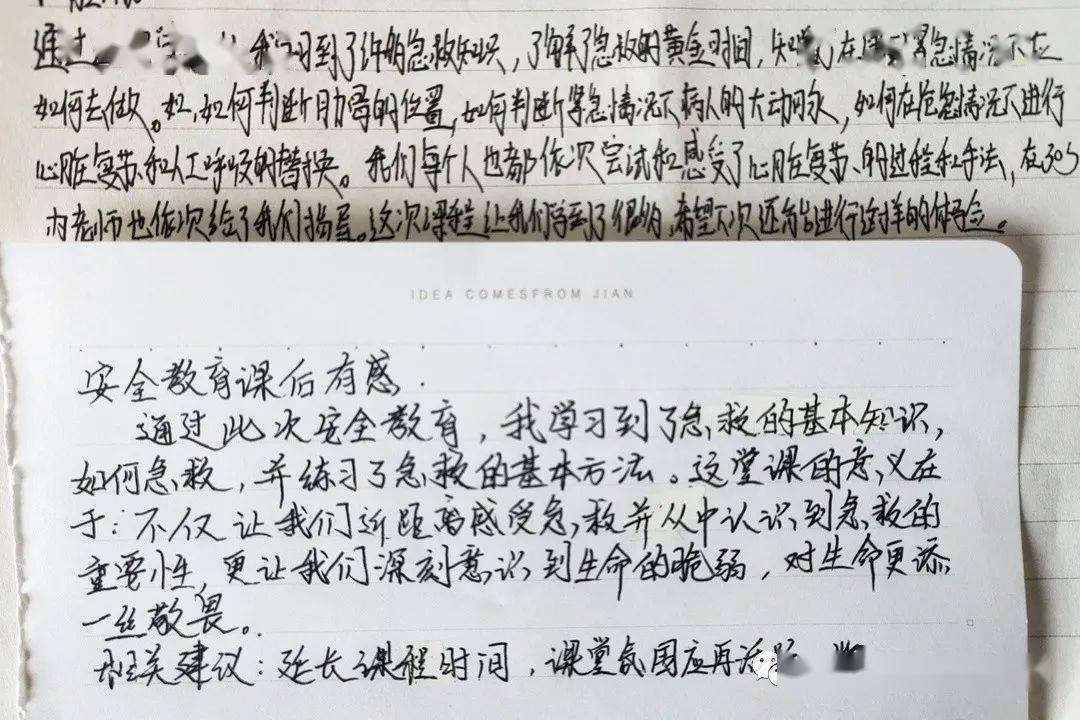 通过 我学习到了许多急救知识，了解了急救的黄金时间，知道了在 紧急情况下应
如何去做。如，如何判断肋骨的位置，如何判断紧急情况下病人的大动脉，如何在危急情况下进行
心脏复苏和人工呼吸的替换。我们每个人也都依次尝试和感受了心脏复苏的过程和手法，在30s
内老师也依次给了我们指导。这次课程让我们学到了很多，希望下次还能进行这样的体验。
IDEA COMESFROM JIAN
安全教育课后有感.
通过此次安全教育，我学习到了急救的基本知识，
如何急救，并练习了急救的基本方法。这堂课的意义在
于：不仅让我们近距离感受急救并从中认识到急救的
重要性，更让我们深刻意识到生命的脆弱，对生命更添
一丝敬畏。
相关建议：延长课程时间，课堂氛围应再活